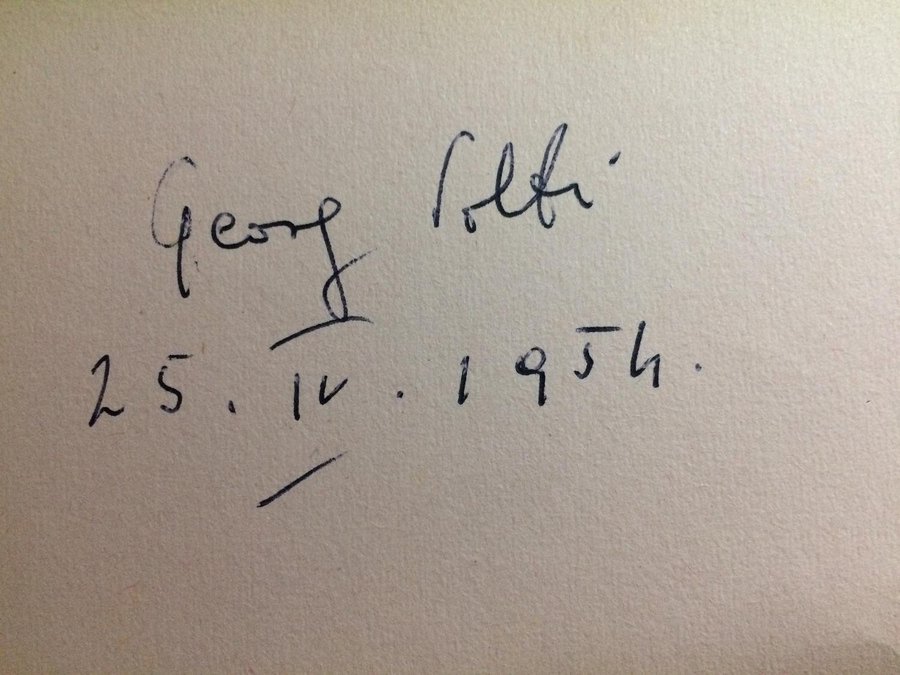 Georg Solti
25. IV. 1954.